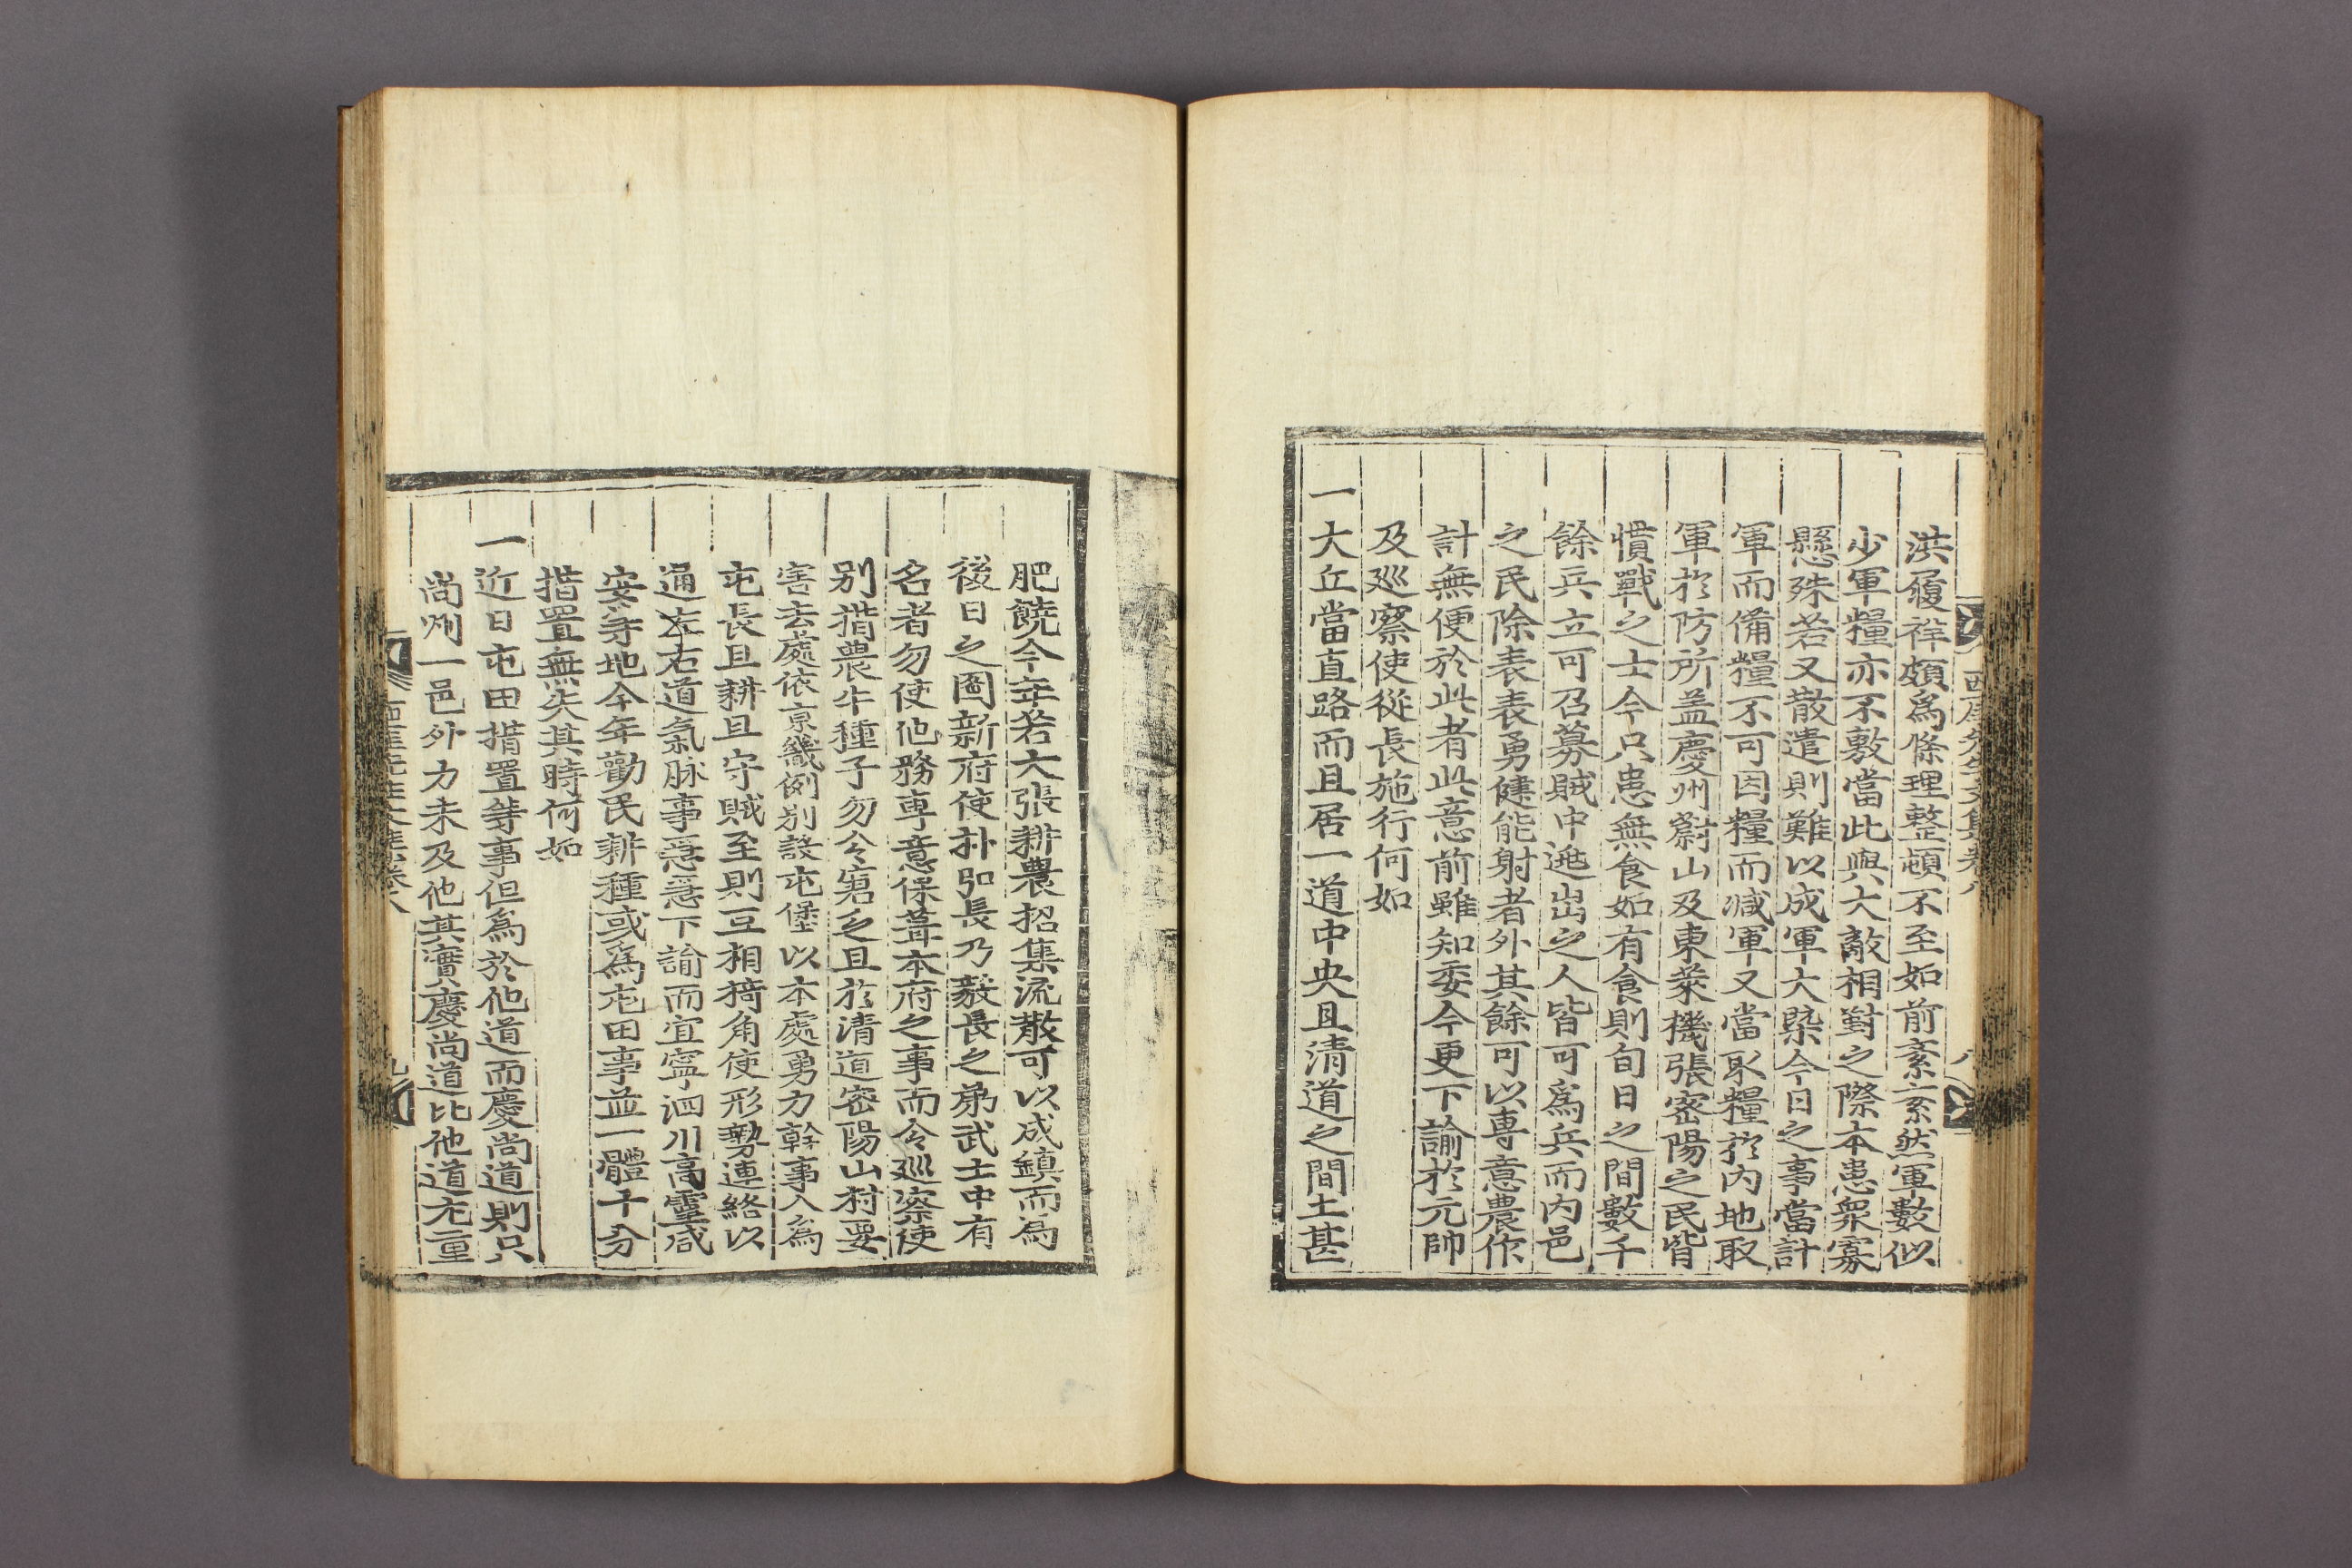 西厓先生文集卷八
八
洪履祥頗爲條理整頓不至如前紊紊然軍數似
少軍糧亦不敷當此與大敵相對之際本患衆寡
懸殊若又散遣則難以成軍大槩今日之事當計
軍而備糧不可因糧而减軍又當取糧於內地取
軍於防所盖慶州蔚山及東萊機張密陽之民皆
憤戰之士今只患無食如有食則旬日之間數千
餘兵立可召募賊中逃出之人皆可爲兵而內邑
之民除表表勇健能射者外其餘可以專意農作
計無便於此者此意前雖知委今更下諭於元帥
及廵察使從長施行何如
一大丘當直路而且居一道中央且清道之間土甚
肥饒今年若大張耕農招集流散可以成鎭而爲
後日之圖新府使朴弘長乃毅長之弟武士中有
名者勿使他務專意保葺本府之事而令廵察使
別措農牛種子勿令窘乏且於清道密陽山村要
害去處依京畿例別設屯堡以本處勇力幹事人爲
屯長且耕且守賊至則互相掎角使形勢連絡以
通左右道氣脉事急急下諭而宜寧泗川高靈咸
安等地今年勸民耕種或爲屯田事並一體十分
措置無失其時何如
一近日屯田措置等事但爲於他道而慶尙道則只
尙州一邑外力未及他其實慶尙道比他道尤重
西厓先生文集卷八
九